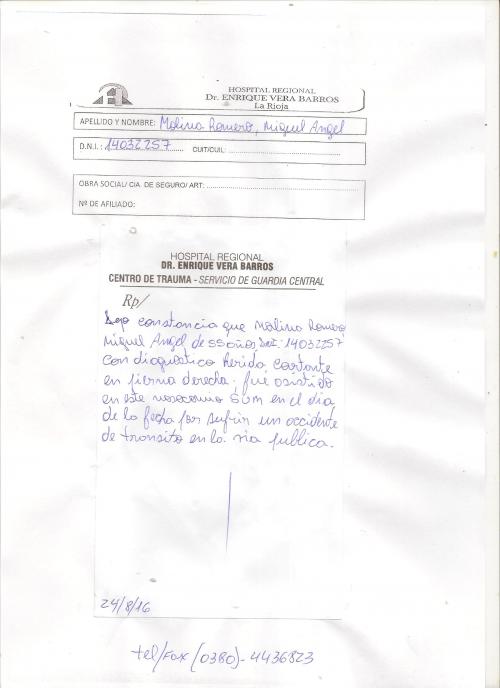 HOSPITAL REGIONAL
Dr. ENRIQUE VERA BARROS
La Rioja
APELLIDO Y NOMBRE: Molina Romero, Miguel Angel
D.N.I.: 14032257 CUIT/CUIL:
OBRA SOCIAL/ CIA. DE SEGURO/ ART:
Nº DE AFILIADO:
HOSPITAL REGIONAL
DR. ENRIQUE VERA BARROS
CENTRO DE TRAUMA - SERVICIO DE GUARDIA CENTRAL
Rp/
constancia que Molina Romero
Miguel Angel de 55 años, DNI: 14032257
con diagnostico herida cortante
en pierna derecha; fue asistido
en este nosocomio en el dia
de la fecha por sufrir un accidente
de transito en la via publica.
24/8/16
tel/Fax (0380)-4436823